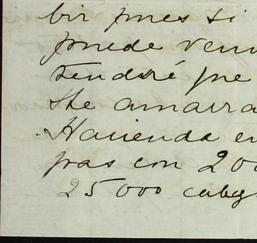 bir pues si
puede ven
tendré que
the amarra
Hacienda en
pas con 200
25000 cabg